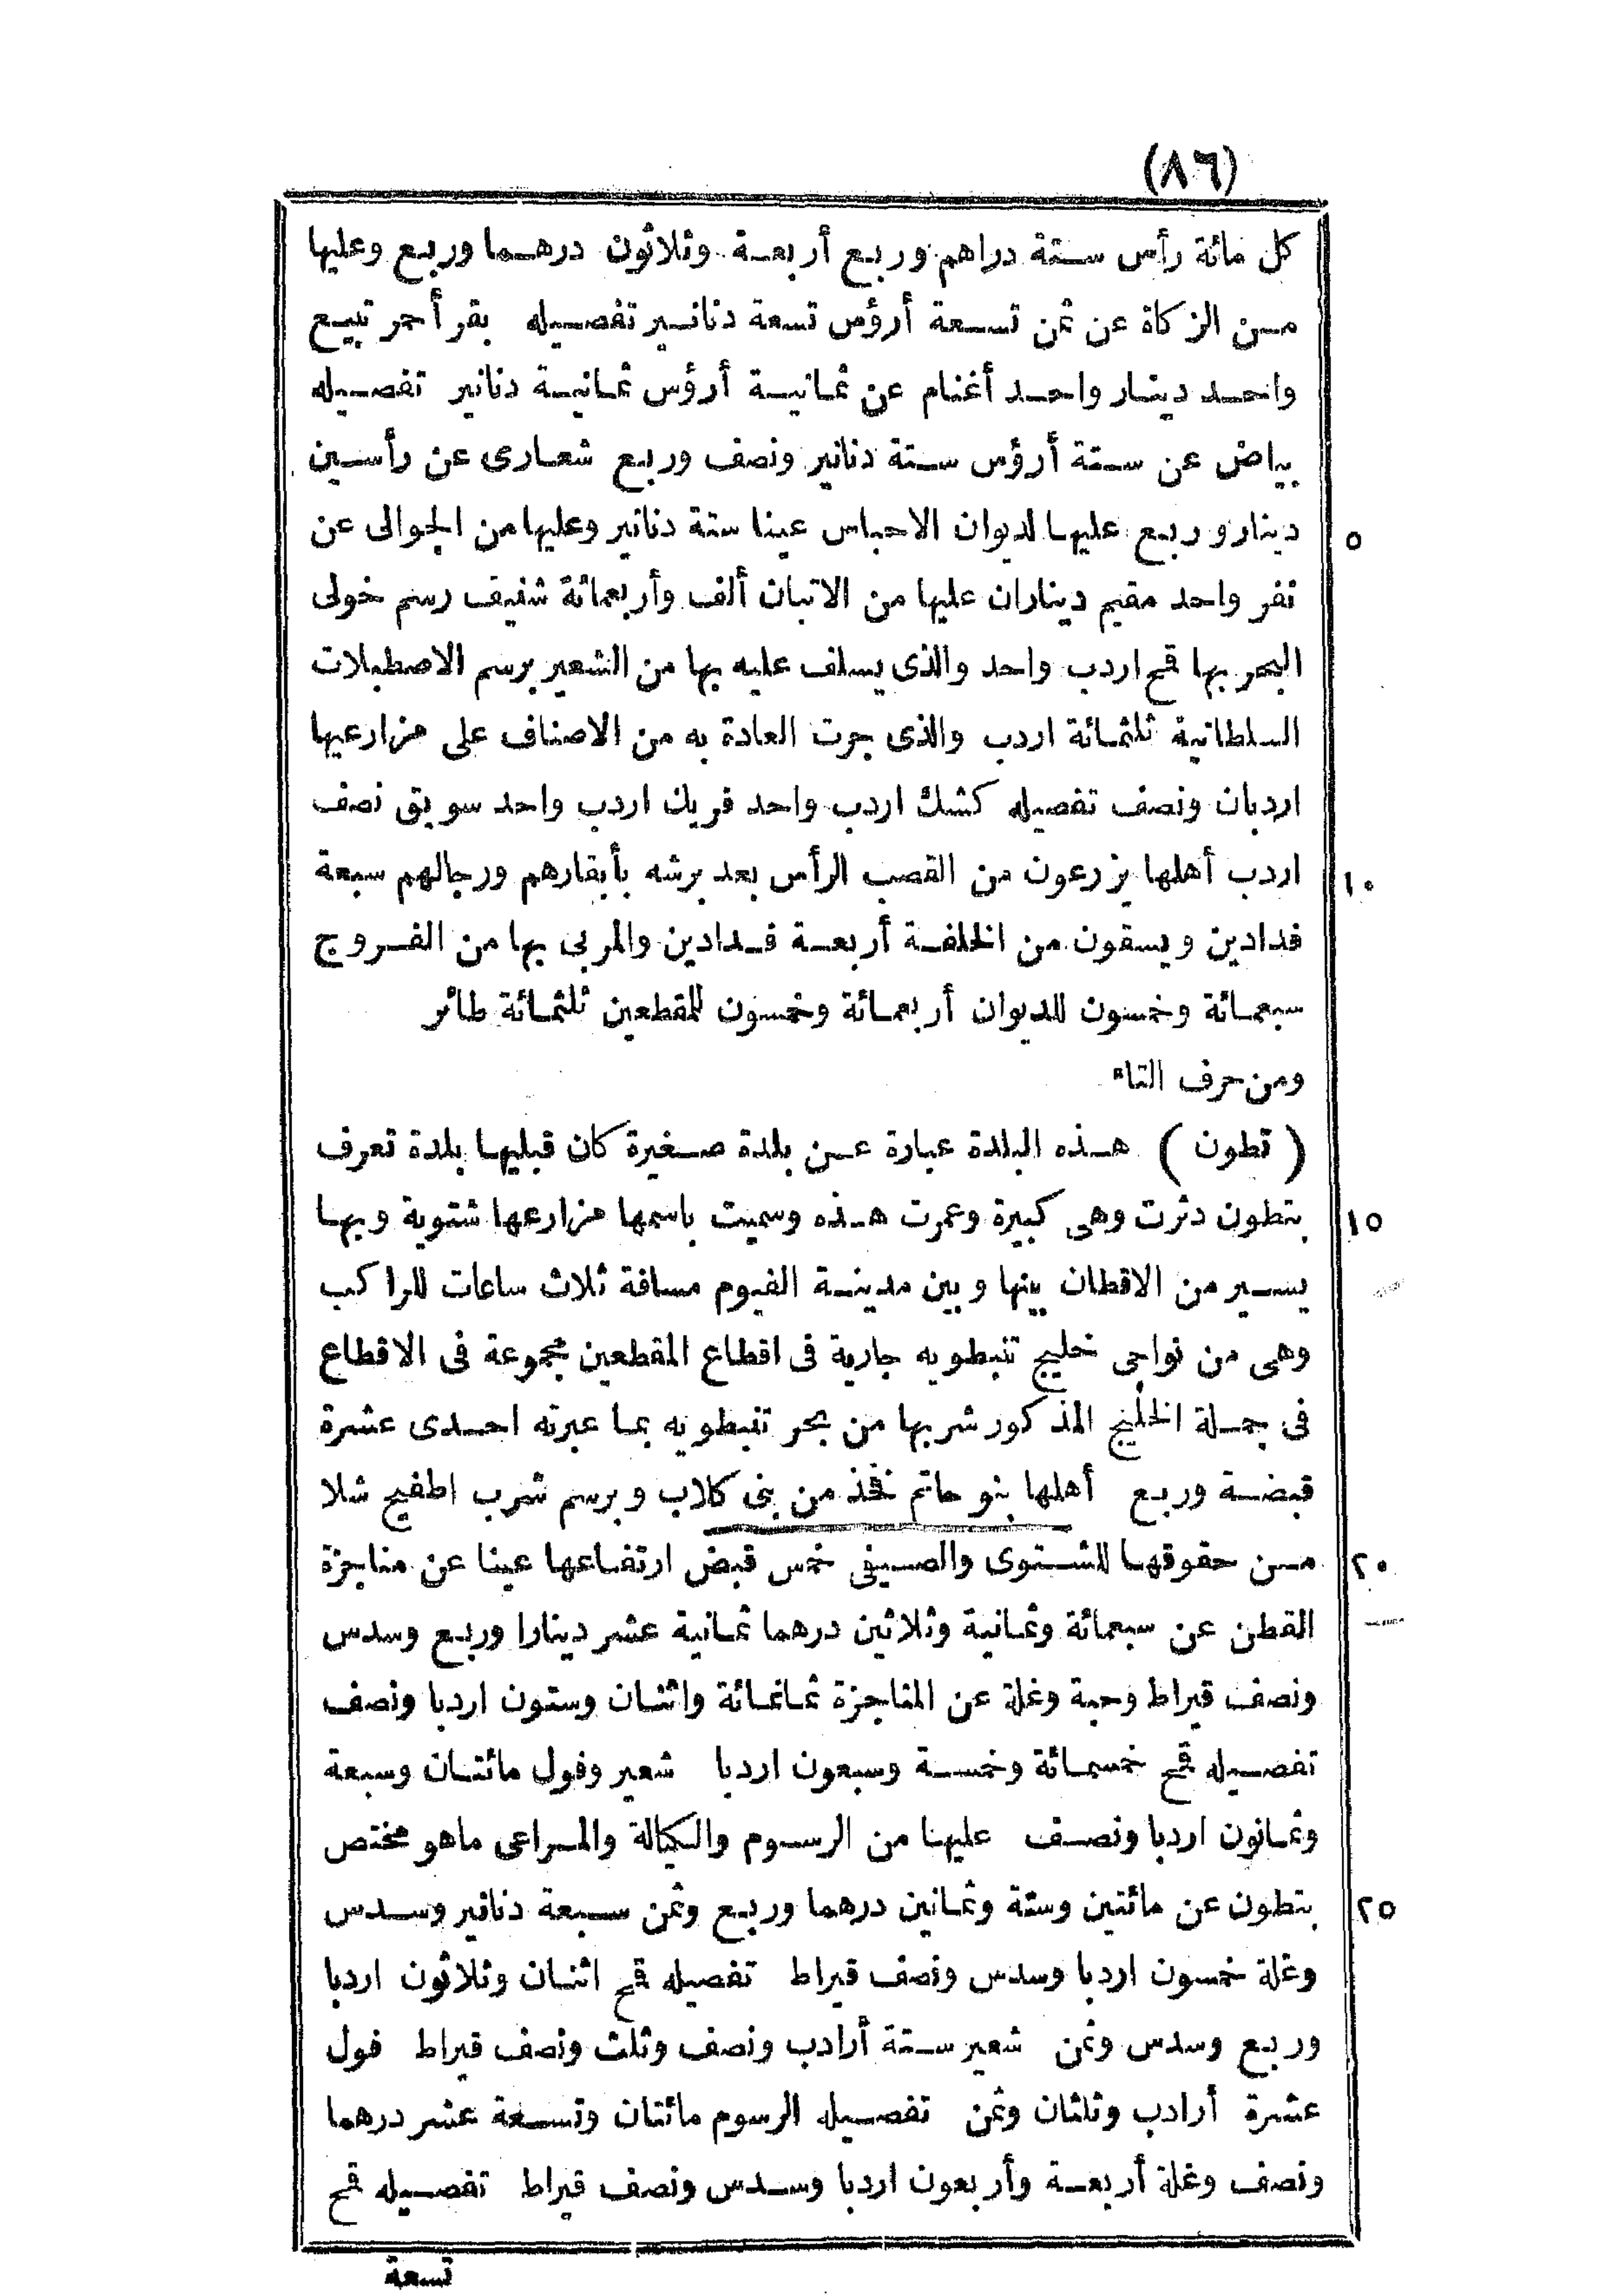 (٨٦)
كل مائة رأس ستة دراهم وربع أربعة وثلاثون درهما وربع وعليها
من الزكاة عن ثمن تسعة أرؤس تسعة دنانير تفصيله بقر أحمر تبيع
واحد دينار واحد أغنام عن ثمانية أرؤس ثمانية دنانير تفصيله
بياض عن ستة أرؤس ستة دنانير ونصف وربع شعارى عن رأسين
دينار وربع عليها لديوان الاحباس عينا ستة دنانير وعليها من الجوالى عن
٥
نفر واحد مقيم ديناران عليها من الاتبان ألف وأربعمائة شنيف رسم خولى
البحر بها قمح اردب واحد والذى يسلف عليه بها من الشعير برسم الاصطبلات
السلطانية ثلثمائة اردب والذى جرت العادة به من الاصناف على مزارعيها
اردبان ونصف تفصيله كشك اردب واحد فريك اردب واحد سويق نصف
اردب أهلها يزرعون من القصب الرأس بعد برشه بأبقارهم ورجالهم سبعة
١٠
فدادين ويسقون من الخلفة أربعة فدادين والمربى بها من الفروج
سبعمائة وخمسون للديوان أربعمائة وخمسون للمقطعين ثلثمائة طائر
ومن حرف التاء
(تطون) هذه البلدة عبارة عن بلدة صغيرة كان قبليها بلدة تعرف
بتطون دثرت وهى كبيرة وعمرت هذه وسميت باسمها مزارعها شتوية وبها
١٥
يسير من الاقطان بينها وبين مدينة الفيوم مسافة ثلاث ساعات للراكب
وهى من نواحى خليج تنبطويه جارية فى اقطاع المقطعين مجموعة فى الاقطاع
فى جملة الخليج المذكور شربها من بحر تنبطويه بما عبرته احدى عشرة
قبضة وربع أهلها بنو حاتم فخذ من بنى كلاب وبرسم شرب اطفيح شلا
من حقوقها للشتوى والصيفى خمس قبض ارتفاعها عينا عن مناجزة
٢٠
القطن عن سبعمائة وثمانية وثلاثين درهما ثمانية عشر دينارا وربع وسدس
ونصف قيراط وحبة وغلة عن المناجزة ثمانمائة واثنان وستون اردبا ونصف
تفصيله قمح خمسمائة وخمسة وسبعون اردبا شعير وفول مائتان وسبعة
وثمانون اردبا ونصف عليها من الرسوم والكيالة والمراعى ماهو مختص
بتطون عن مائتين وستة وثمانين درهما وربع وثمن سبعة دنانير وسدس
٢٥
وغلة خمسون اردبا وسدس ونصف قيراط تفصيله قمح اثنان وثلاثون اردبا
وربع وسدس وثمن شعير ستة أرادب ونصف وثلث ونصف قيراط فول
عشرة أرادب وثلثان وثمن تفصيله الرسوم مائتان وتسعة عشر درهما
ونصف وغلة أربعة وأربعون اردبا وسدس ونصف قيراط تفصيله قمح
تسعة